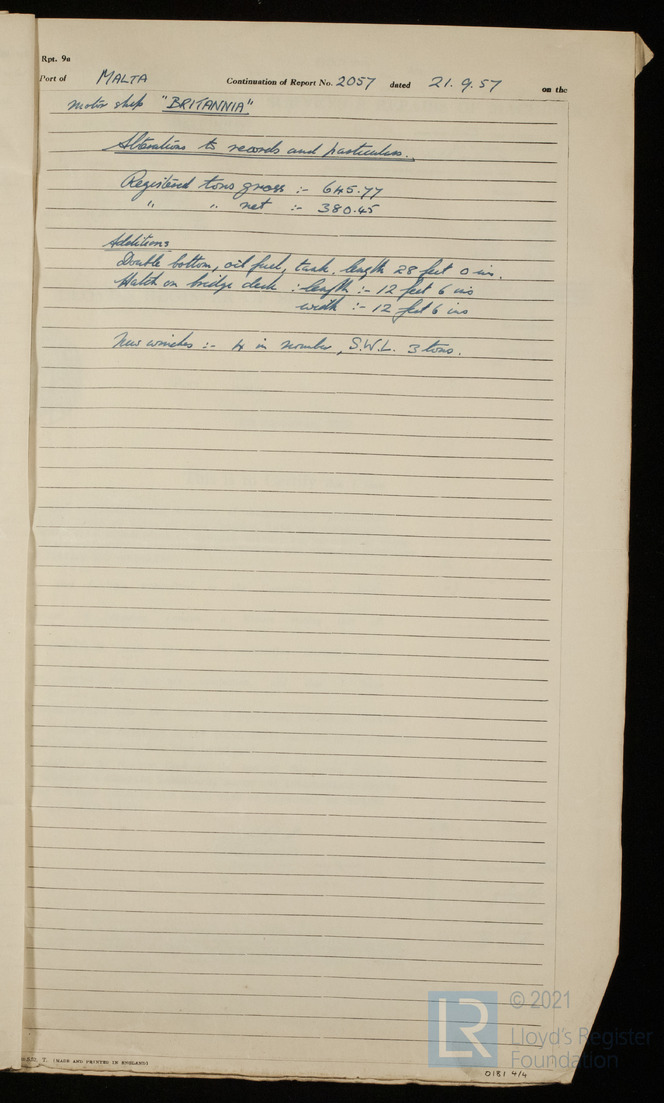 Rpt. 9a
Port of MALTA Continuation of Report No. 2057 dated 21.9.57 on the
motor ship "BRITANNIA"
Alterations to records and particulars.
Registered tons gross :- 645.77
" " net :- 380.45
Additions
Double bottom, oil fuel, tank, length 28 feet 0 in.
Hatch on bridge deck : length :- 12 feet 6 ins
width :- 12 feet 6 ins
New winches :- 4 in number, S.W.L. 3 tons.
T. (MADE AND PRINTED IN ENGLAND)
LR © 2021
Lloyd's Register
Foundation
0181 4/4